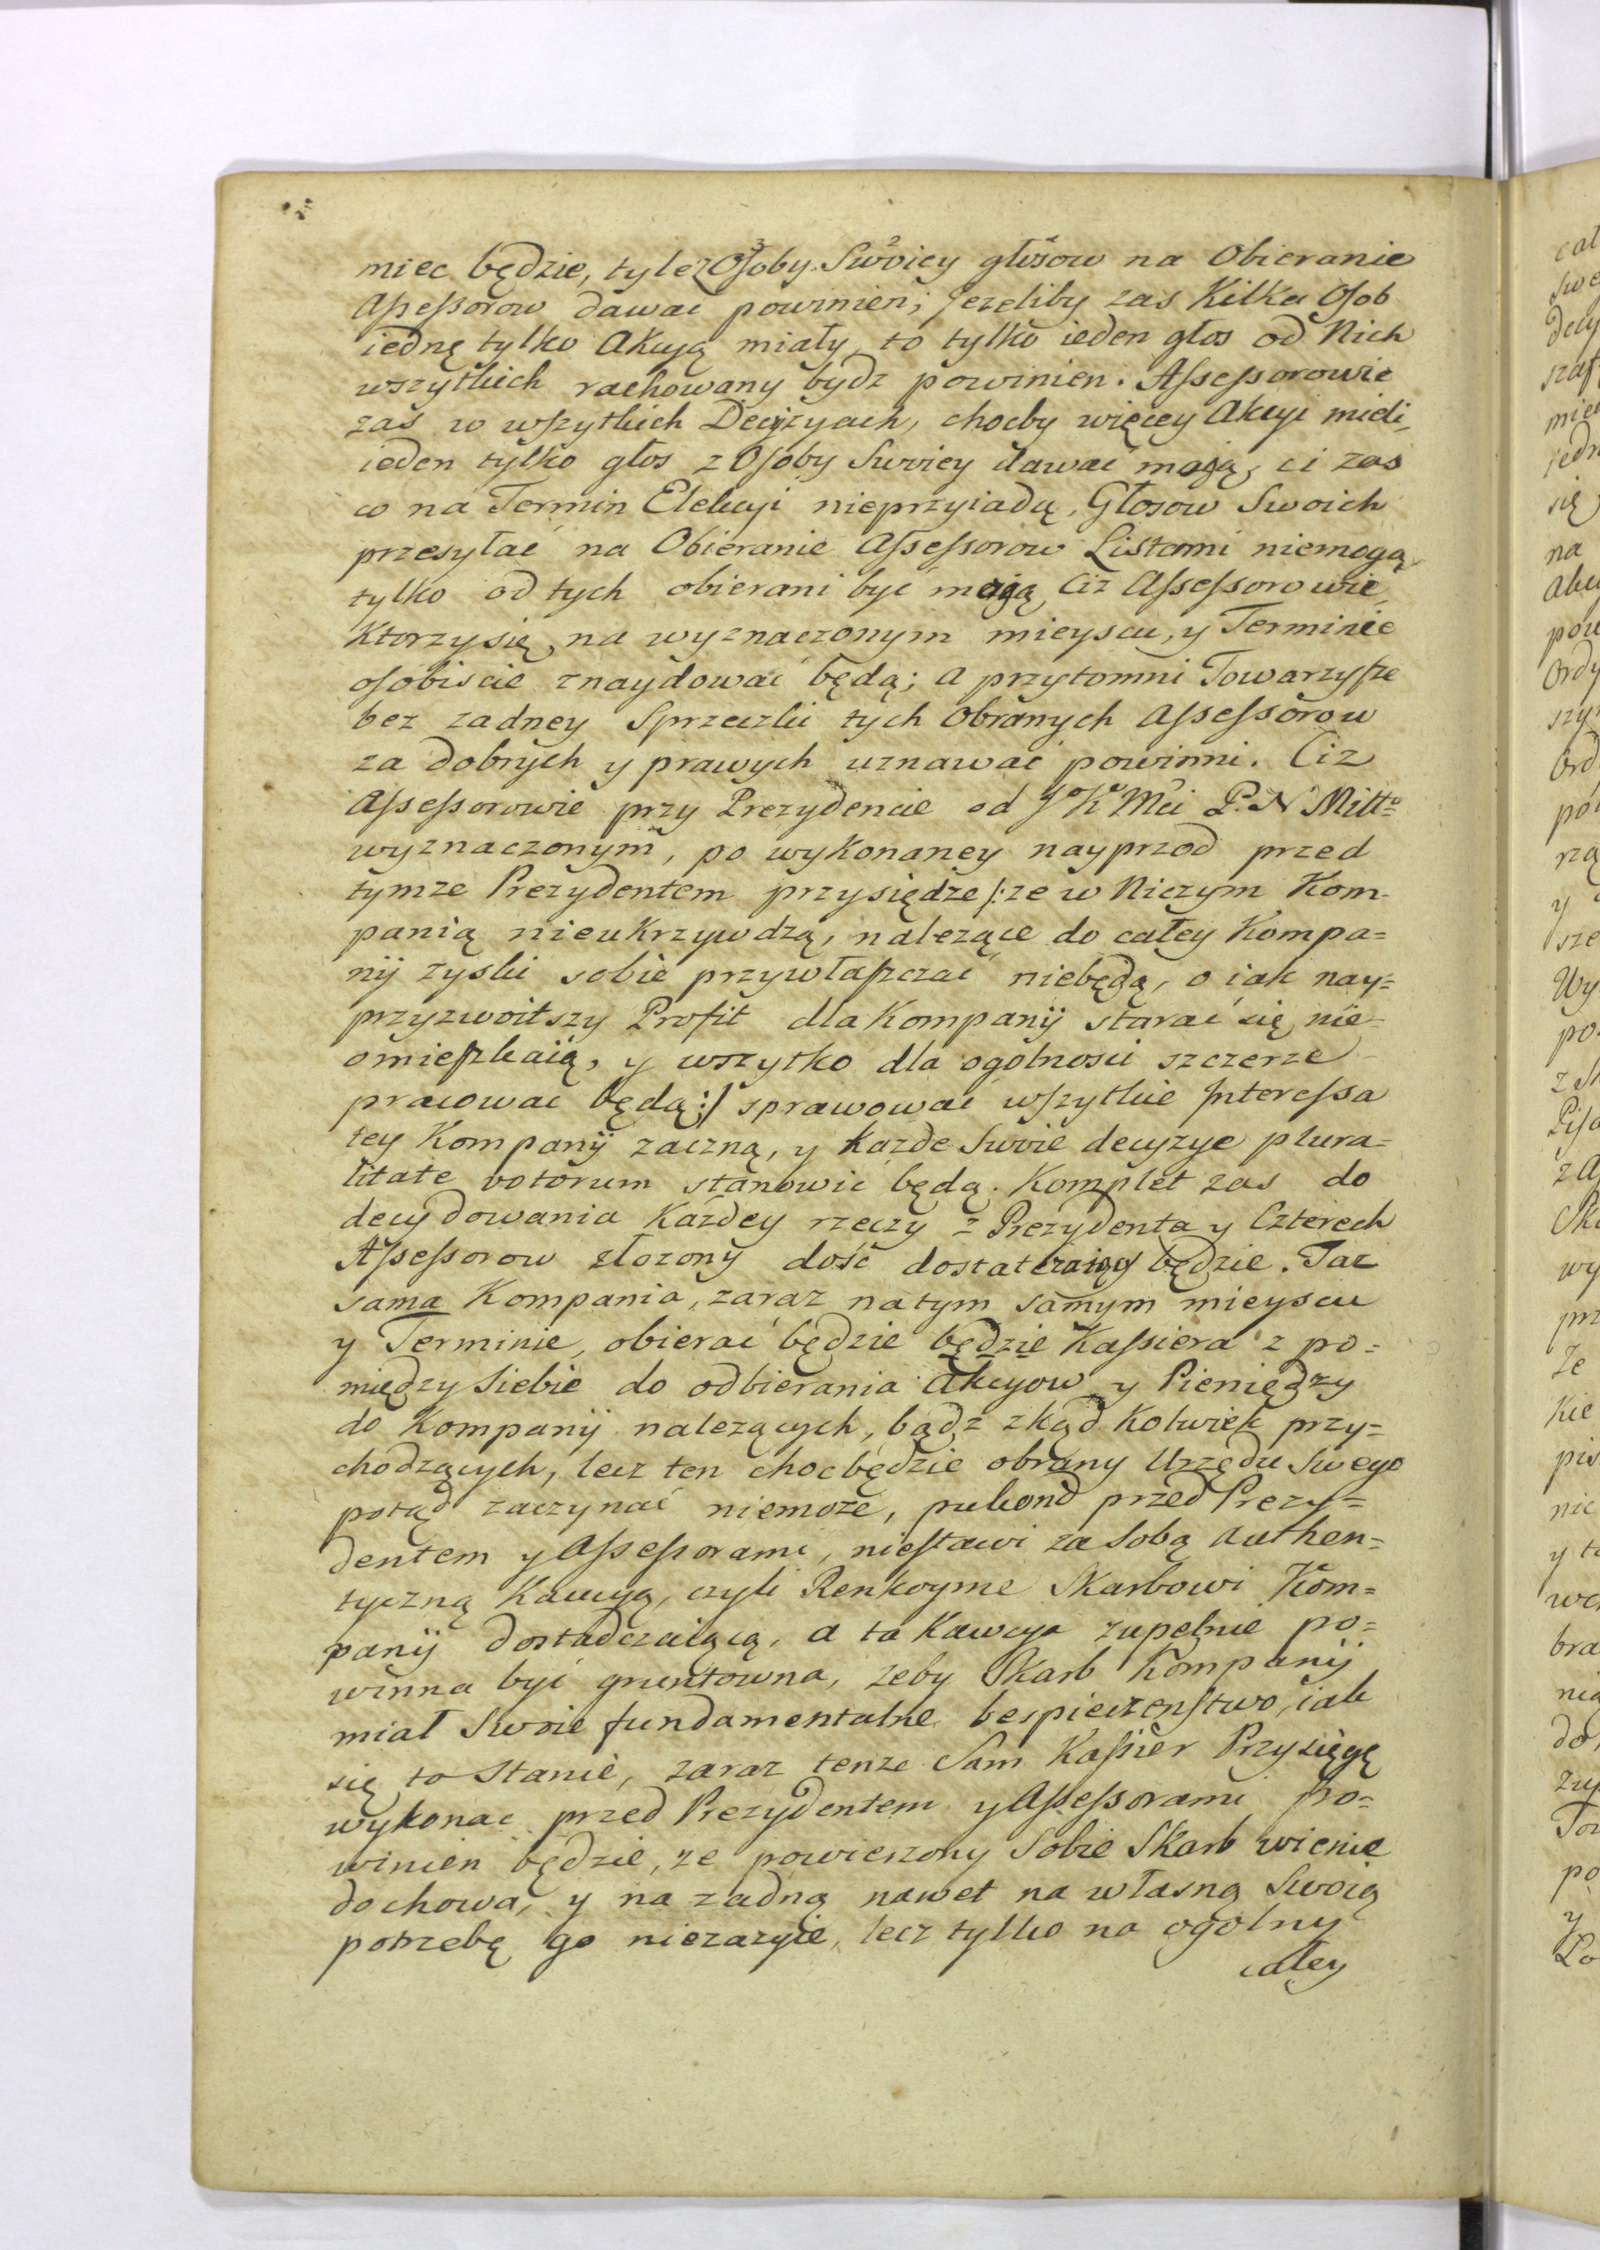 miec będzie, tyle z Osoby Swoiey głosow na Obieranie
Assessorow dawac powinien; Jezeliby zas Kilka Osob
iednę tylko Akcyą miały, to tylko ieden głos od Nich
wszytkich rachowany bydz powinien. Assessorowie
zaś w wszytkich Decyzyach, chocby więcey Akcyi mieli,
ieden tylko głos z Osoby Swoiey dawać mają, ci zas
co na Termin Elekcyi nieprzyiadą, Głosow Swoich
przesyłać na Obieranie Assessorow Listami niemogą
tylko od tych obierani być mają Ciz Assessorowie
Ktorzy się, na wyznaczonym mieyscu, y Terminie
osobiscie znaydować będą; a przytomni Towarzysze
bez zadney Sprzeczki tych Obranych Assessorow
za dobrych y prawych uznawać powinni. Ciz
Assessorowie przy Prezydencie od J° K° Mci P. N Mitt°
wyznaczonym, po wykonaney nayprzod przed
tymze Prezydentem przysiędze /:ze w Niczym Kom-
panią nieukrzywdzą, nalezące do całey Kompa=
nij zyski sobie przywłaszczać niebędą, o iak nay=
przyzwoitszy Profit dla Kompanij starać się nie-
omieszkaią, y wszytko dla ogolnosci szczerze
pracować będą:/ sprawować wszytkie Interessa
tey Kompanij zaczną, y każde Swoie decyzye plura=
litate votorum stanowić będą. Komplet zas do
decydowania Każdey rzeczy z Prezydenta y Czterech
Assessorow złozony dość dostateczaiący będzie. Taz
sama Kompania, zaraz na tym samym mieyscu
y Terminie, obierać będzie będzie Kassiera z po=
między Siebie do odbierania Akcyow y Pieniędzy
do Kompanij nalezących, bądz zkąd Kolwiek przy=
chodzących, lecz ten choc będzie obrany Urzędu Swego
potąd zaczynać niemoze, pukond przed Prezy=
dentem y Assessorami, niestawi za Sobą authen=
tyczną Kawcyą, czyli Renkoyme Skarbowi Kom=
panij dostadczaiącą, a ta Kawcya zupełnie po=
winna być gruntowna, zeby Skarb Kompanij
miał Swoie fundamentalne bespieczenstwo, iak
się to Stanie, zaraz tenze Sam Kassier Przysięgę
wykonac przed Prezydentem y Assessorami po=
winien będzie, ze powierzony Sobie Skarb wiernie
dochowa, y na zadną nawet na własną Swoią
potrzebę go niezazyie, lecz tylko na ogolny
całey